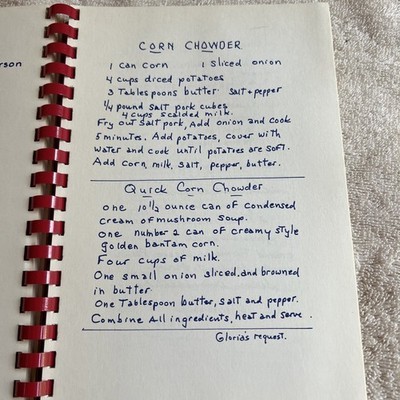 erson
CORN CHOWDER
1 can corn 1 sliced onion
4 cups diced potatoes
3 Tablespoons butter salt + pepper
1/4 pound salt pork cubes
4 cups scalded milk.
Fry out salt pork, Add onion and cook
5 minutes. Add potatoes, cover with
water and cook until potatoes are soft.
Add corn, milk, salt, pepper, butter.
Quick Corn Chowder
one 10 1/2 ounce can of condensed
cream of mushroom soup.
One number 2 can of creamy style
golden bantam corn.
Four cups of milk.
One small onion sliced, and browned
in butter.
One Tablespoon butter, salt and pepper.
Combine All ingredients, heat and serve.
Gloria's request.